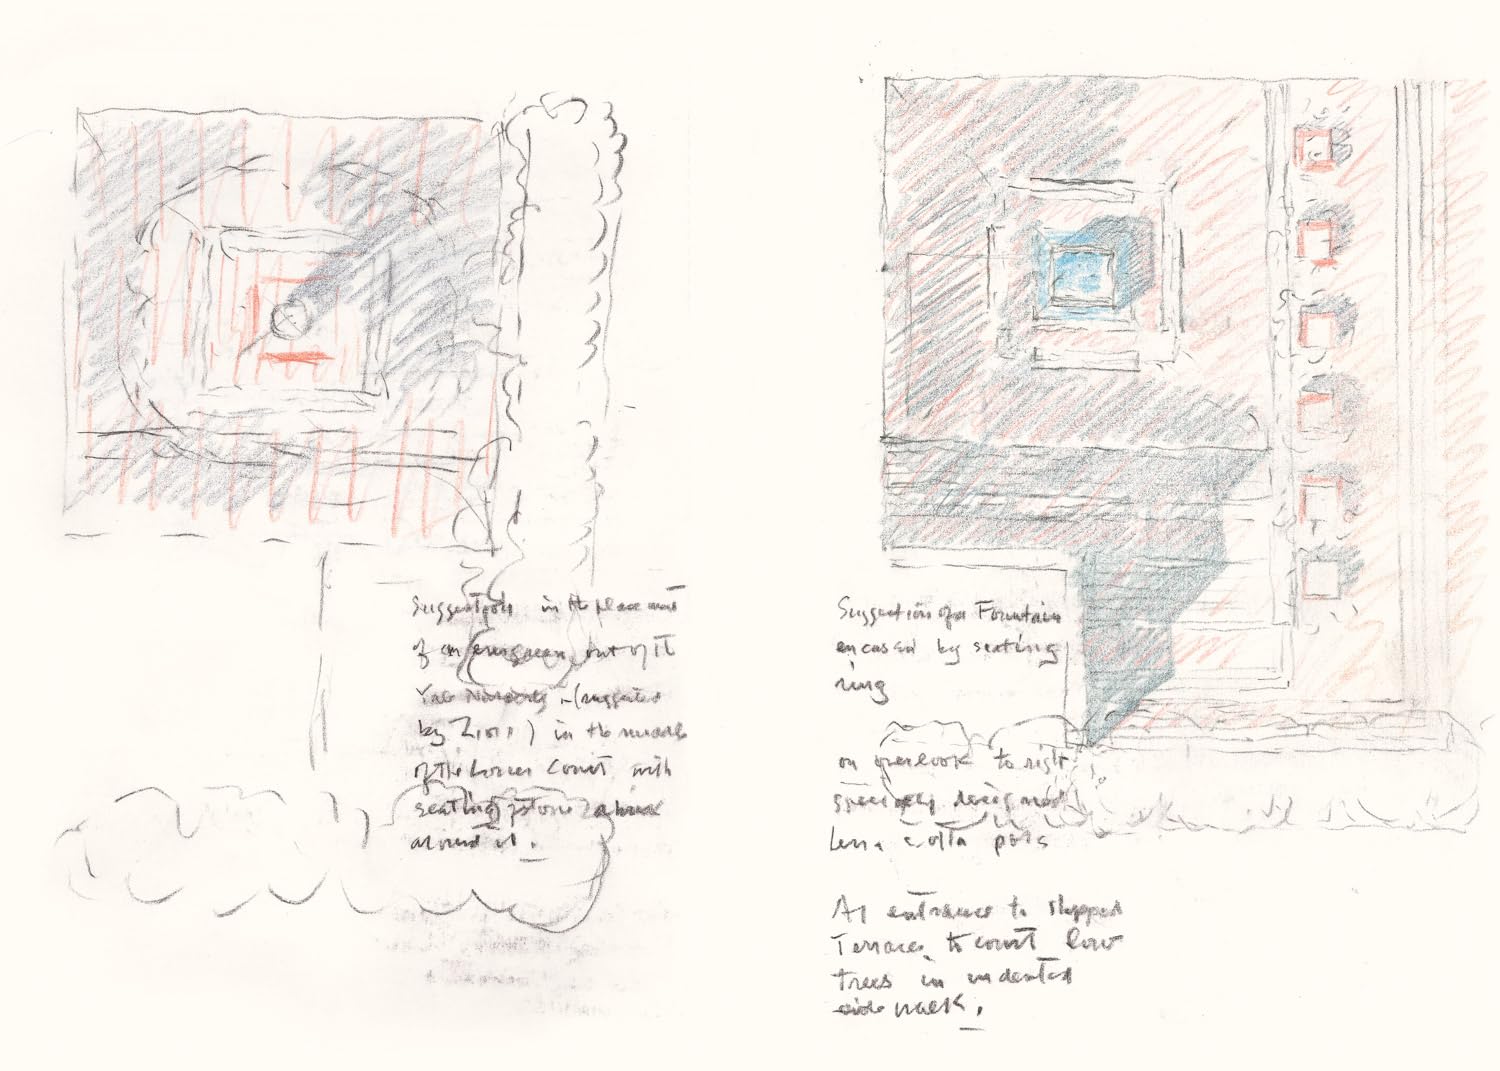 Suggestions in the placement
of an evergreen out of the
Yale Nursery – (suggested
by Zion) in the middle
of the Lower Court with
seating stone
around it.
Suggestion of a Fountain
encased by seating
ring
on overlook to right
specially designed
terra cotta pots
At entrance to stepped
Terraces to court low
trees in indented
side walk.